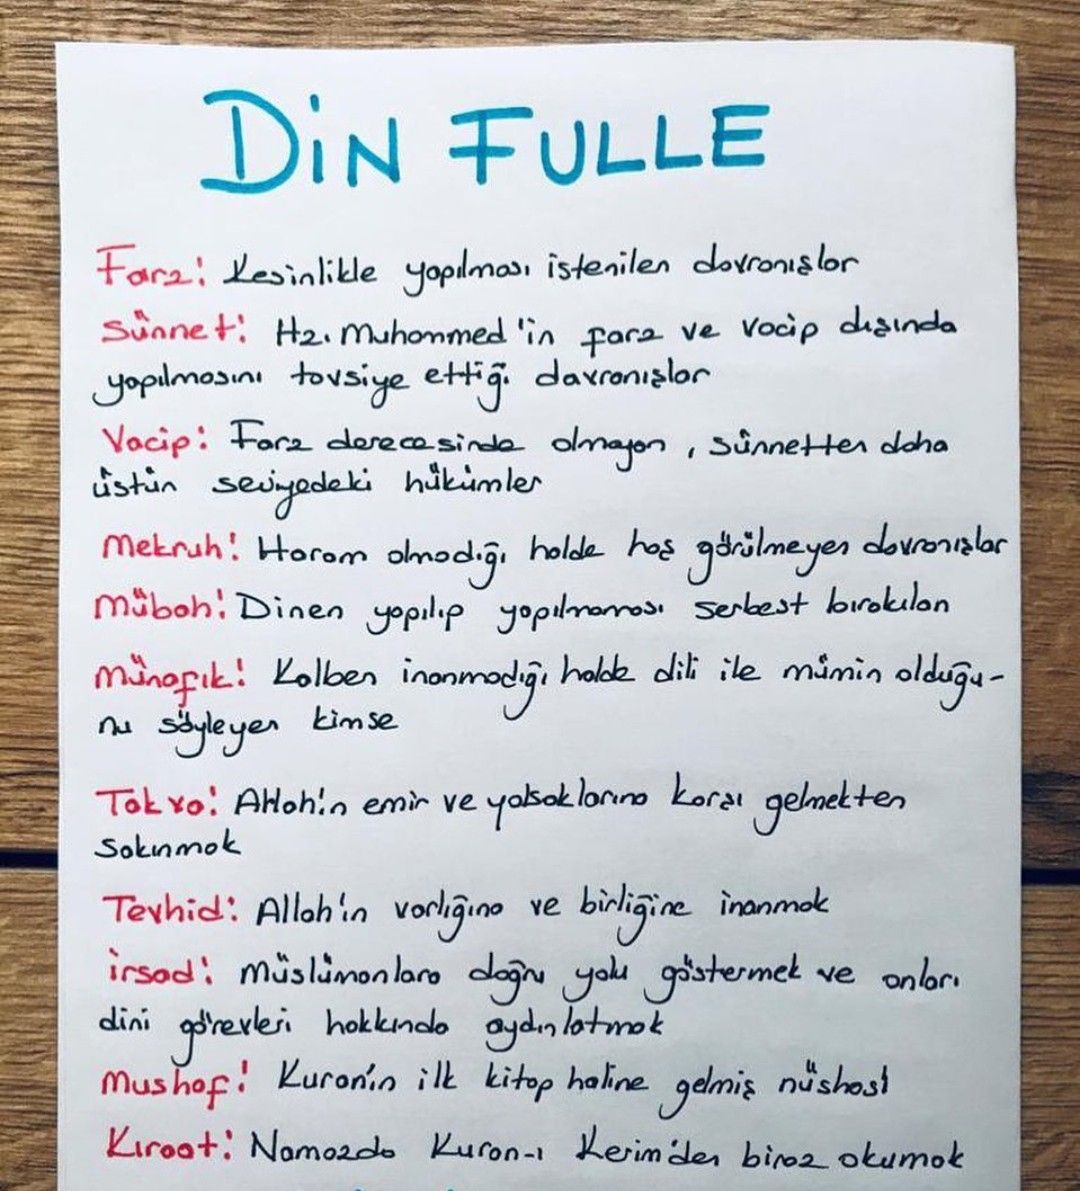 DİN FULLE
Farz: Kesinlikle yapılması istenilen davranışlar
Sünnet: Hz. Muhammed'in farz ve vacip dışında
yapılmasını tavsiye ettiği davranışlar
Vacip: Farz derecesinde olmayan, sünnetten daha
üstün seviyedeki hükümler
Mekruh: Haram olmadığı halde hoş görülmeyen davranışlar
Mübah: Dinen yapılıp yapılmaması serbest bırakılan
Münafık: Kalben inanmadığı halde dili ile mümin olduğu-
nu söyleyen kimse
Takva: Allah'ın emir ve yasaklarına karşı gelmekten
sakınmak
Tevhid: Allah'ın varlığına ve birliğine inanmak
irşad: Müslümanlara doğru yolu göstermek ve onları
dini görevleri hakkında aydınlatmak
Mushaf: Kuran'ın ilk kitap haline gelmiş nüshası
Kıraat: Namazda Kuran-ı Kerim'den biraz okumak